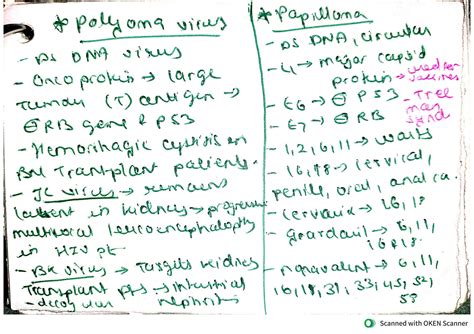 * Polyoma virus
- DS DNA virus
- Onco protein → large
Tumour (T) antigen →
⊖ RB gene & P53
- Hemorrhagic cystitis in
BM Transplant patients.
- JC virus → remains
latent in kidney → progressive
multifocal leucoencephalopathy
in HIV pt.
- BK virus → Targets kidney
Transplant pts → interstitial
- decoy cells nephritis
* Papilloma
- DS DNA, circular
- L1 → major capsid
protein → used for
vaccines
- E6 → ⊖ P53 - Tree
man
synd
- E7 → ⊖ RB
- 1, 2, 6, 11 → warts
- 16, 18 → cervical,
penile, oral, anal ca.
- cervarix → 16, 18
- Guardasil → 6, 11,
16, 18.
- nonavalent → 6, 11,
16, 18, 31, 33, 45, 52,
58
Scanned with OKEN Scanner